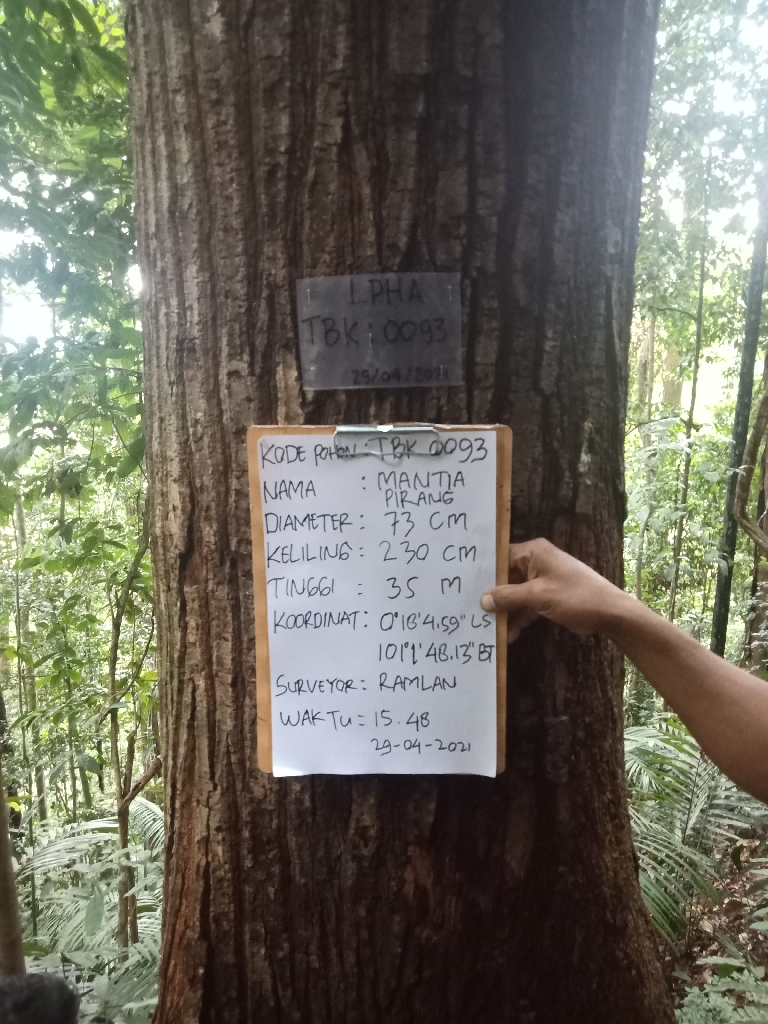 LPHA
TBK : 0093
29/04/2021
KODE POHON : TBK 0093
NAMA : MANTIA
PIRANG
DIAMETER : 73 CM
KELILING : 230 CM
TINGGI : 35 M
KOORDINAT : 0°18'4.59" LS
101°1'48.13" BT
SURVEYOR : RAMLAN
WAKTU : 15.48
29-04-2021